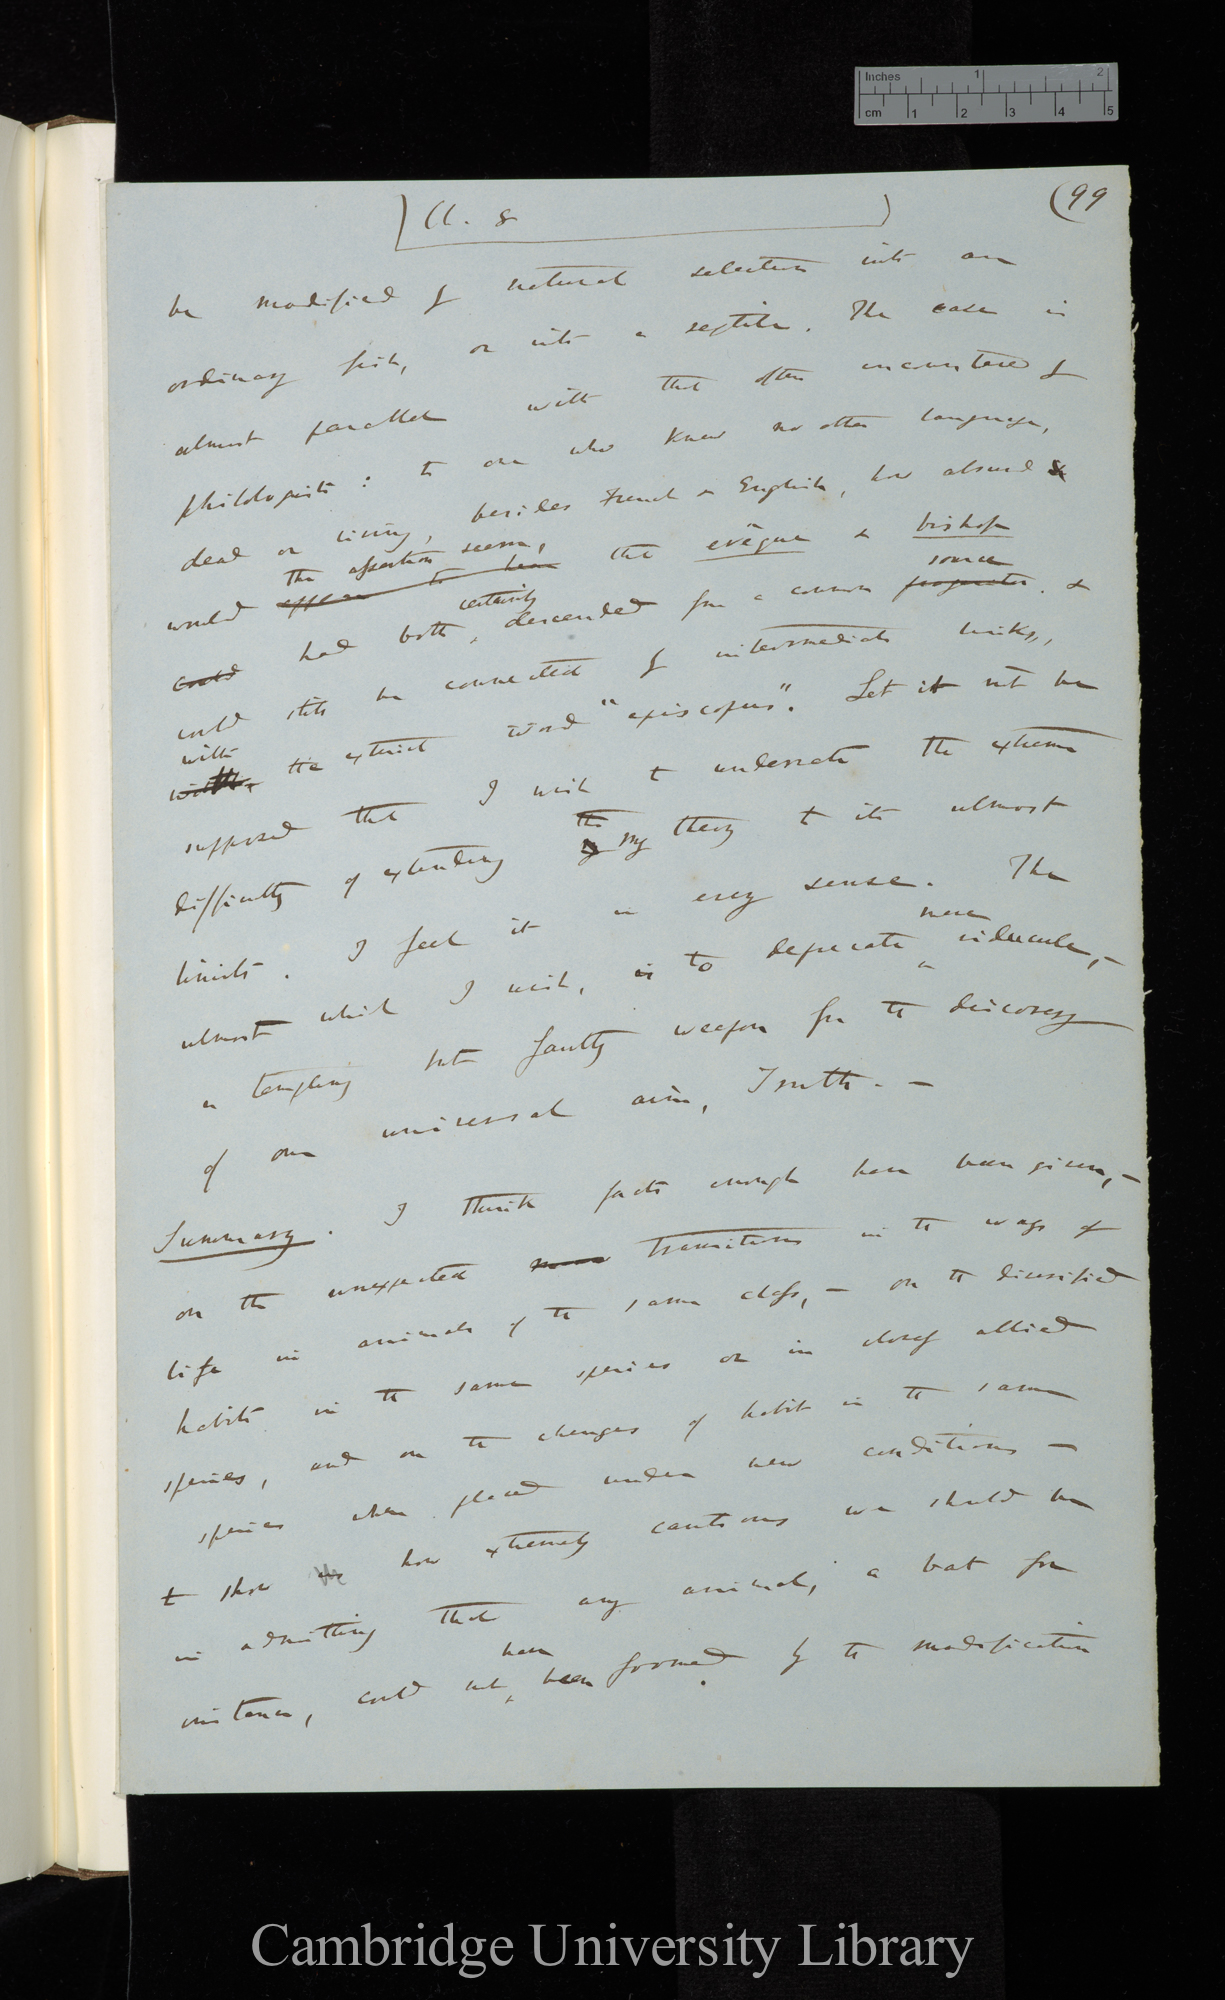 Inches 1 2
cm 1 2 3 4 5
(99
Ch. 8
be modified by natural selection into an
ordinary fish, or into a reptile. The case is
almost parallel with that often encountered by
philologists: to one who knew no other language,
dead or living, besides French & English, how absurd
the assertion seem,
would appear to have the evêque & bishop
certainly source
could had both, descended from a common progenitor. &
could still be connected by intermediate links,
with
with the extinct word "episcopus". Let it not be
supposed that I wish to underrate the extreme
the
difficulty of extending my theory to its utmost
limits. I feel it in every sense. The
mere
utmost which I wish, is to deprecate ridicule, –
a tempting but faulty weapon for the discovery
of our universal aim, Truth. –
Summary. I think facts enough have been given, –
on the unexpected transitions in the ways of
life in animals of the same class, – on the diversified
habits in the same species or in closely allied
species, and on the changes of habit in the same
species when placed under new conditions –
to show how extremely cautious we should be
in admitting that any animal, a bat for
have
instance, could not been formed by the modification
Cambridge University Library